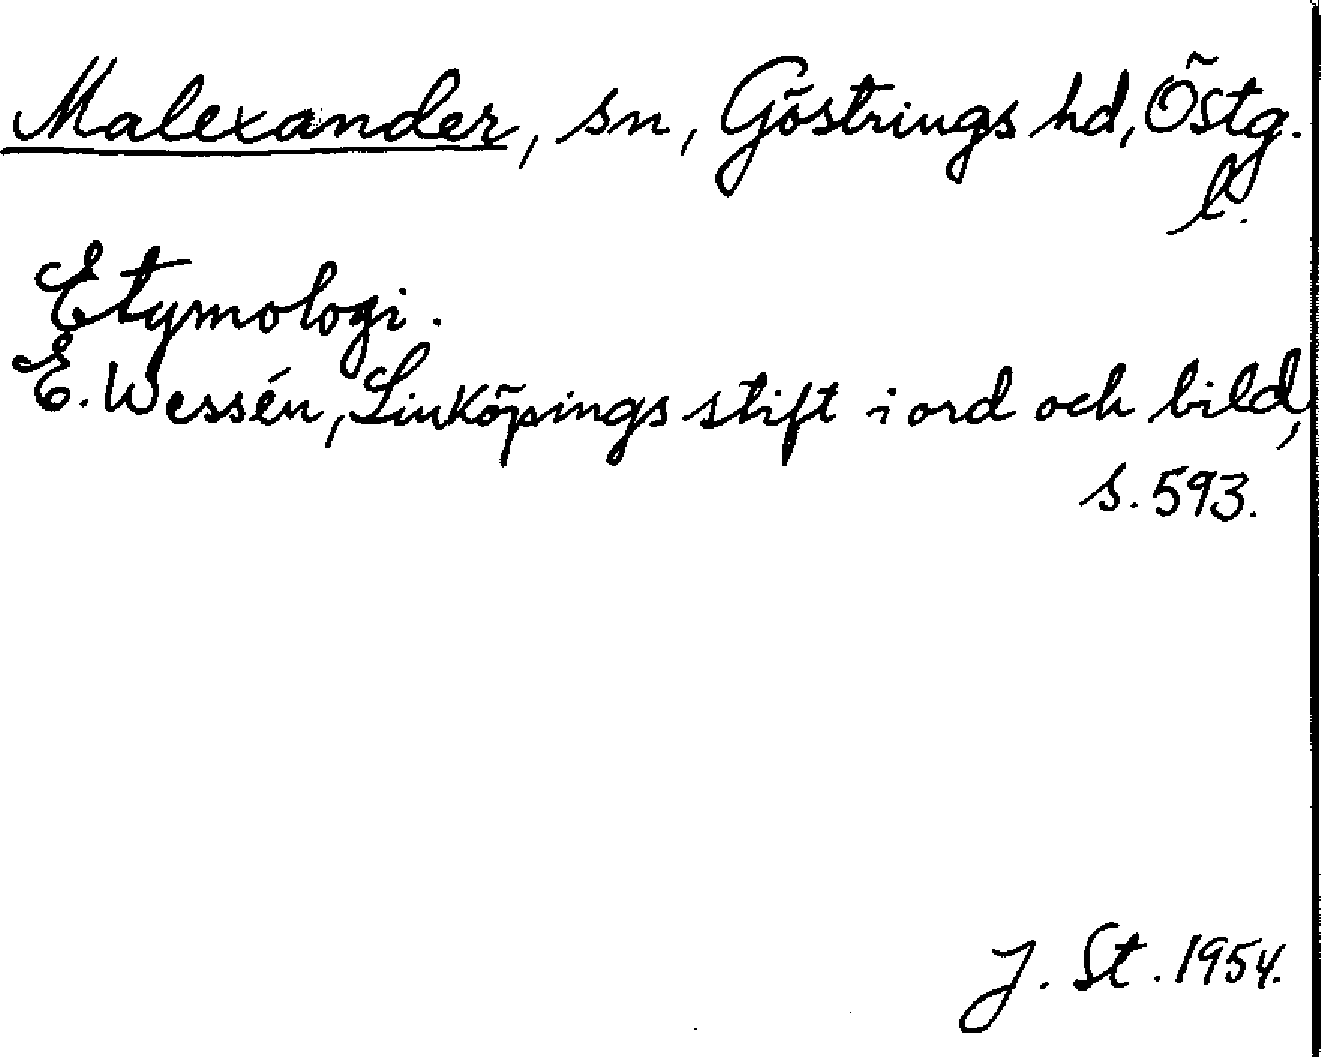 Malexander, sn, Göstrings hd, Östg.
l.
Etymologi.
E. Wessén, Linköpings stift i ord och bild,
s. 593.
J. St. 1954.